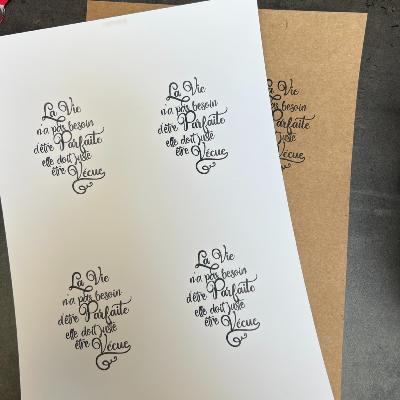 La Vie
n'a pas besoin
d'être Parfaite
elle doit juste
être Vécue
La Vie
n'a pas besoin
d'être Parfaite
elle doit juste
être Vécue
Vie
besoin
Parfaite
juste
Vécue
La Vie
n'a pas besoin
d'être Parfaite
elle doit juste
être Vécue
La Vie
n'a pas besoin
d'être Parfaite
elle doit juste
être Vécue